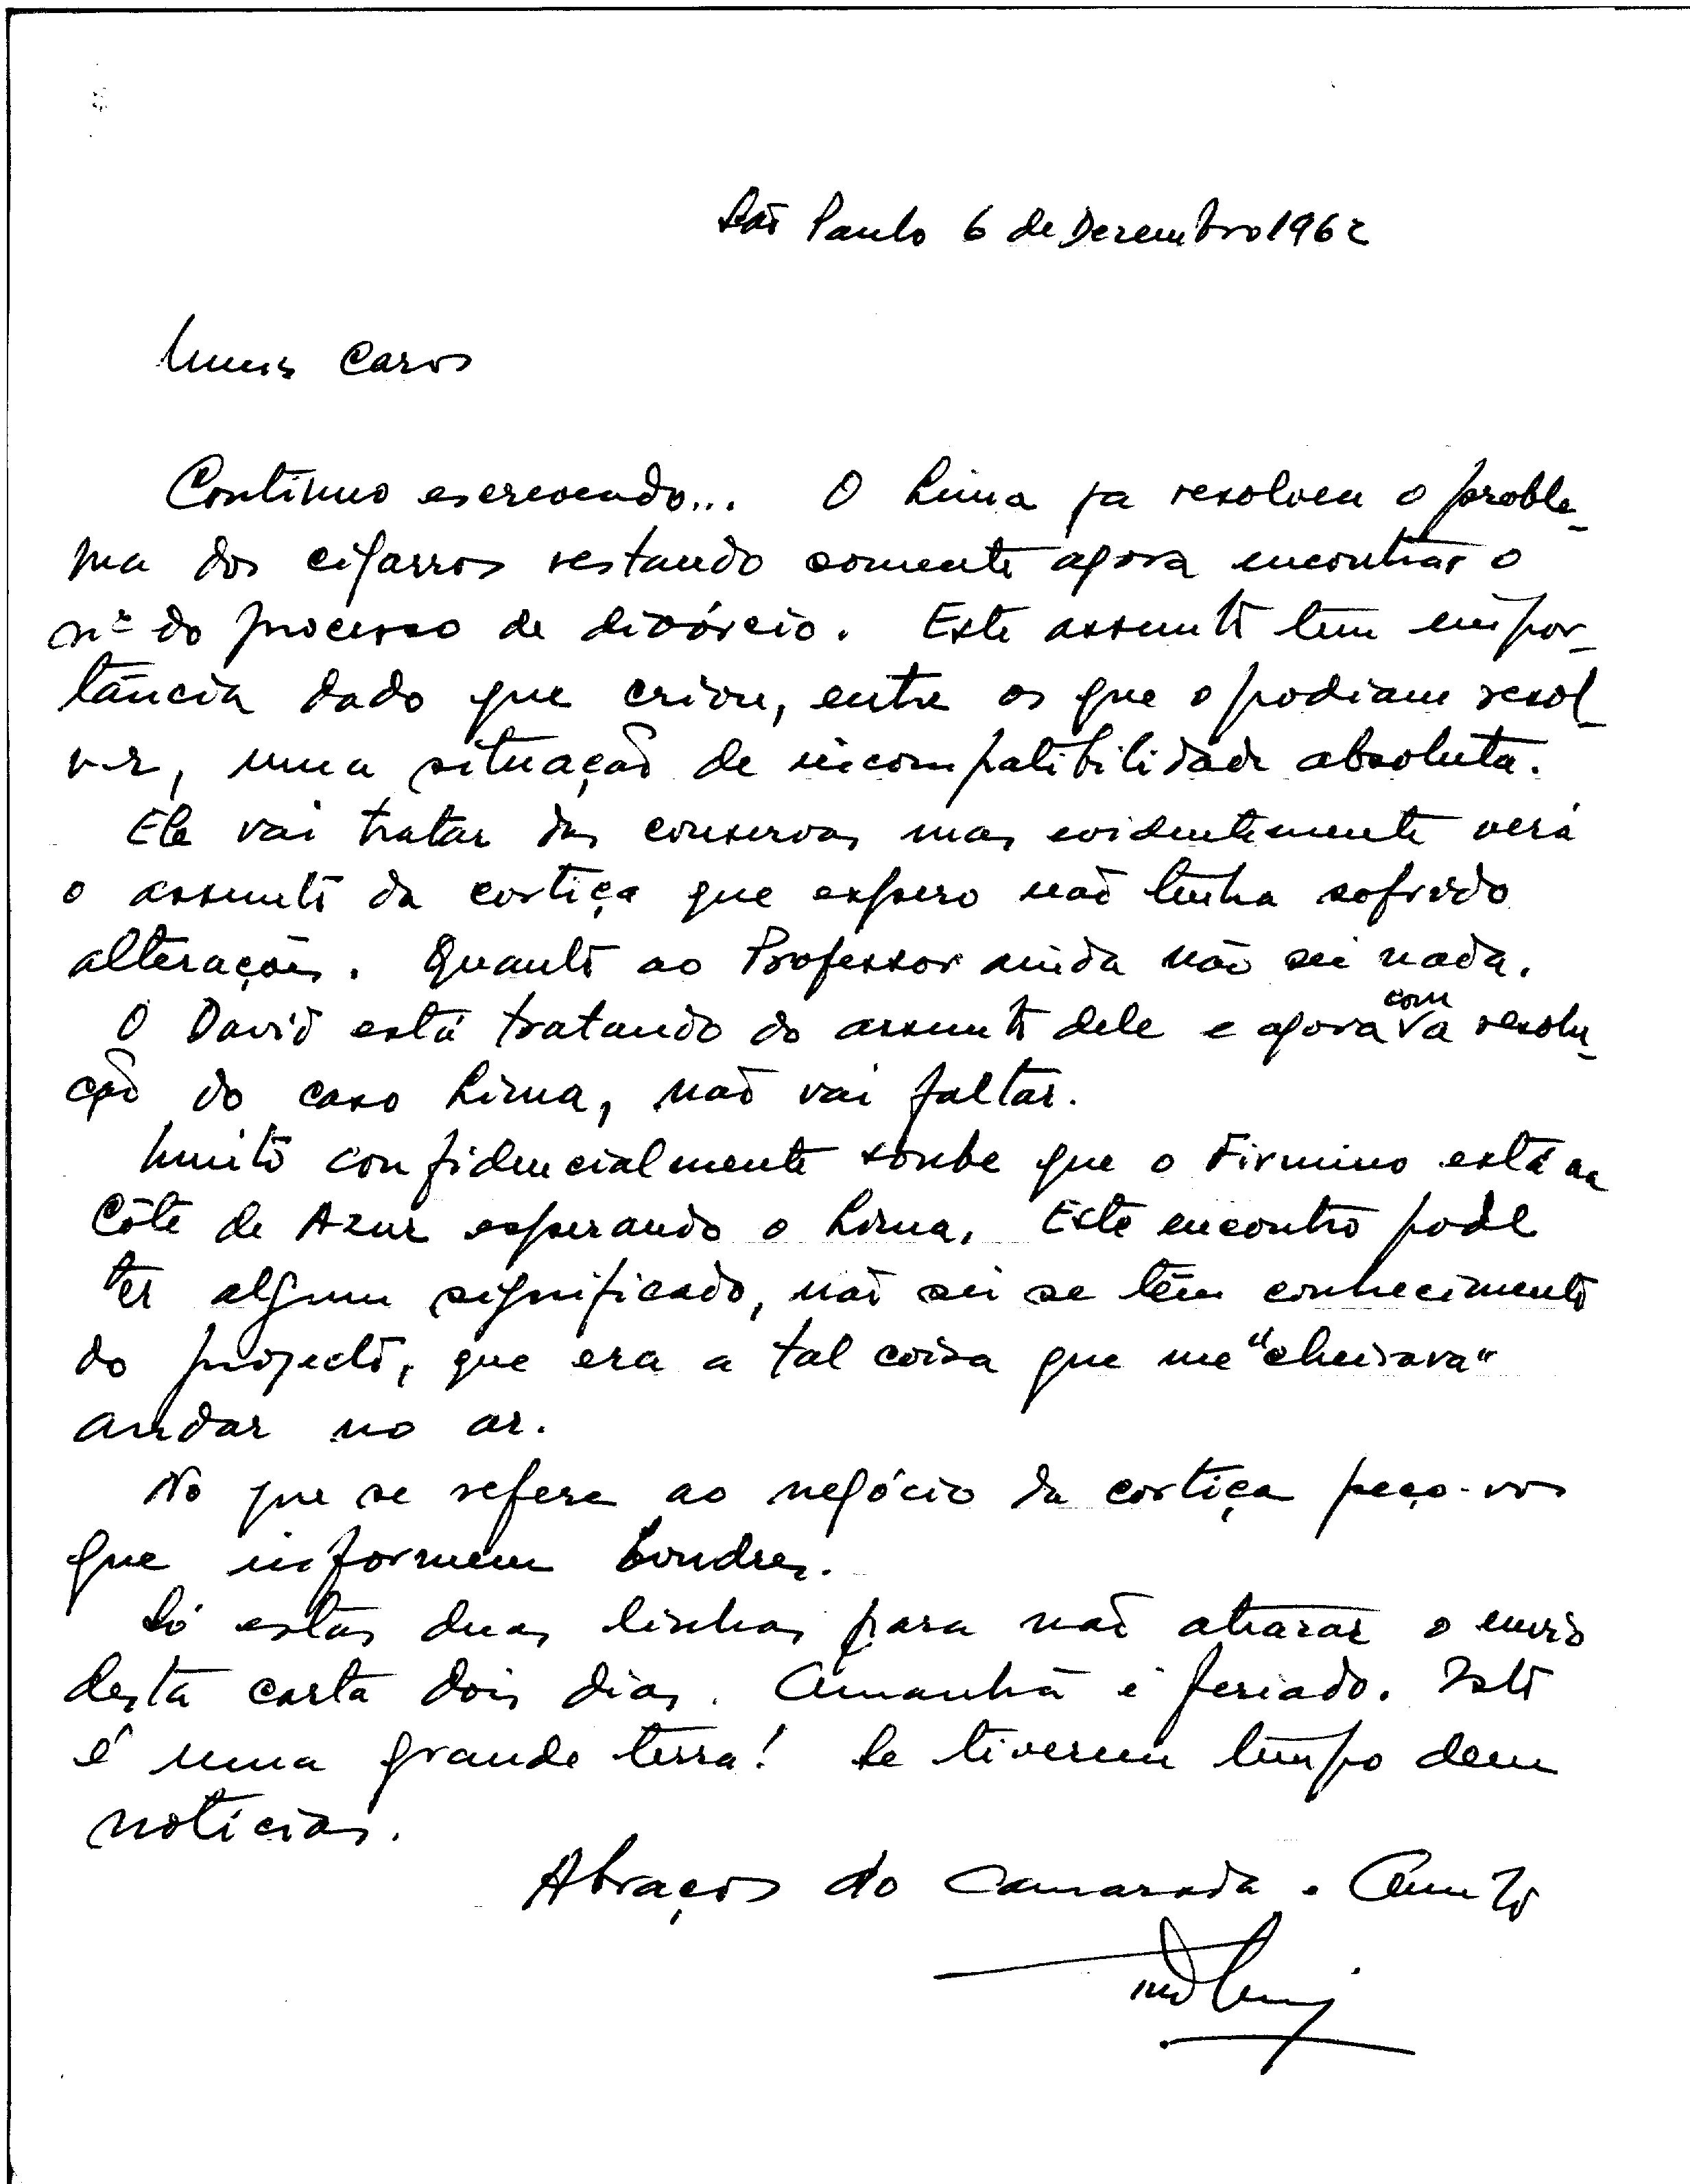 São Paulo 6 de Dezembro 1962
Meus Caros
Continuo escrevendo... O Lima ja resolveu o proble-
ma dos cigarros restando somente agora encontrar o
nº do processo de divórcio. Este assunto tem impor-
tância dado que criou, entre os que o podiam resol-
ver, uma situação de incompatibilidade absoluta.
Ele vai tratar das conservas mas evidentemente verá
o assunto da cortiça que espero não tenha sofrido
alterações. Quanto ao Professor ainda não sei nada.
O David está tratando do assunto dele e agora com a resolu-
ção do caso Lima, não vai faltar.
Muito confidencialmente soube que o Firmino está na
Côte de Azur esperando o Lima. Este encontro pode
ter algum significado, não sei se têm conhecimento
do projecto, que era a tal coisa que me "cheirava"
andar no ar.
No que se refere ao negócio da cortiça peço-vos
que informem Londres.
Só estas duas linhas para não atrazar o envio
desta carta dois dias. Amanhã é feriado. Isto
é uma grande terra! Se tiverem tempo dem
notícias.
Abraços do Camarada e Amigo